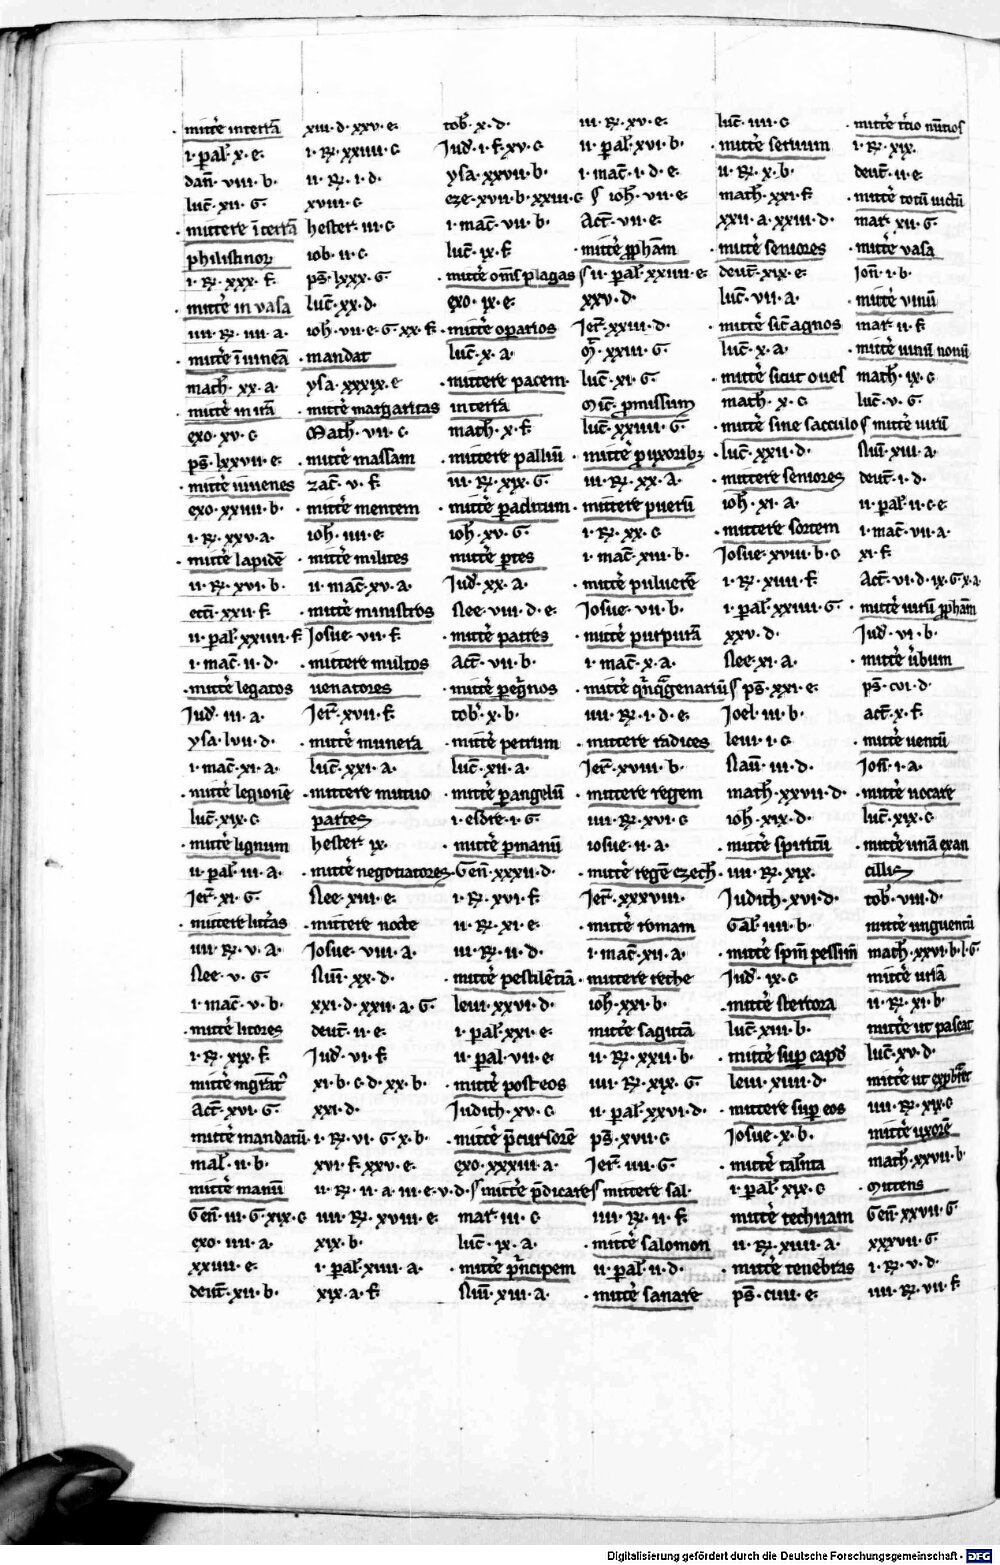 mittē in terrā
i · pal̄ · x · e ·
dan̄ · viii · b ·
luc̄ · xii · G
mittere ī terrā
philistinoꝝ
i · Rꝝ · xxx · f ·
mittē in vasa
iiii · Rꝝ · iiii · a ·
mittē ī vineā
math̄ · xx · a ·
mittē in irā
exo · xv · c
pꝰs̄ · lxxvii · e ·
mittē iuvenes
exo · xxiiii · b ·
i · Rꝝ · xxv · a ·
mittē lapidē
ii · Rꝝ · xvi · b ·
eccī · xxii · f ·
ii · pal̄ · xxiiii · f
i · mac̄ · ii · d ·
mittē legatos
Iud̄ · iii · a ·
ysa · lvii · d ·
i · mac̄ · xi · a ·
mittē legionē
luc̄ · xix · c
mittē lignum
ii · pal̄ · iii · a ·
Ier̄ · xi · G ·
mittere litt̄as
iiii · Rꝝ · v · a ·
Nee · v · G
i · mac̄ · v · b ·
mittē litores
i · Rꝝ · xix · f
Act̄ · xvi · G ·
mittē mandatū
mal̄ · ii · b ·
mittē manū
Gen̄ · iii · G · xix · c
exo · iiii · a ·
xxiii · e ·
deut̄ · xii · b ·
xiii · d · xxv · e ·
i · Rꝝ · xxiiii · c
ii · Rꝝ · i · d ·
xviii · c
hester · iii · c
iob · ii · c
ps̄ · lxxx · G
luc̄ · xx · d ·
ioh̄ · vii · e · G · xx · f ·
mandat
ysa · xxxix · e
mittē margaritas
Math̄ · vii · c ·
mittē massam
zac̄ · v · f ·
mittē mentem
ioh̄ · iiii · e ·
mittē milites
ii · mac̄ · xv · a ·
mittē ministros
Iosue · vii · f ·
mittere multos
venatores
Ier̄ · xvii · f ·
mittē munera
luc̄ · xxi · a ·
mittere mutuo
partes
hester · ix ·
mittē negotiatores
Nee · xiii · e ·
mittere nocte
Iosue · viii · a ·
Nūi · xx · d ·
xxi · d · xxii · a · G ·
deut̄ · ii · e ·
Iud̄ · vi · f ·
xi · b · c · d · xx · b ·
xxi · d ·
i · Rꝝ · vi · G · x · b ·
xvi · f · xxv · e ·
ii · Rꝝ · ii · a · iii · e · v · d ·
iiii · Rꝝ · xviii · e ·
xix · b ·
i · pal̄ · xiii · a ·
xix · a · f ·
tob̄ · x · d ·
Iud̄ · i · f · xv · c
ysa · xxxvii · b ·
eze · xvii · b · xxiii · c
i · mac̄ · vii · b ·
luc̄ · ix · f
mittē om̄s plagas
exo · ix · e ·
mittē oꝑarios
luc̄ · x · a ·
mittere pacem
in terra
math̄ · x · f ·
mittere palliū
iii · Rꝝ · xix · G
mittē ꝑaclitum
ioh̄ · xv · G ·
mittē ꝑtes
Iud̄ · xx · a ·
Nee · viii · d · e ·
mittē patres
Act̄ · vii · b ·
mittē peg̃nos
tob̄ · x · b ·
mittē petrum
luc̄ · xii · a ·
mittē ꝑ angelū
i · esdre · i · G ·
mittē ꝑ manū
Gen̄ · xxxii · d ·
i · Rꝝ · xvi · f ·
ii · Rꝝ · xi · e ·
iii · Rꝝ · ii · d ·
mittē pestilētiā
levi · xxvi · d ·
i · pal̄ · xxi · e ·
ii · pal̄ · vii · e ·
mittē post eos
Iudith · xv · c
mittē p̄cursorē
exo · xxxiii · a ·
mittē p̄dicare
mar̄ · iii · c
luc̄ · ix · a ·
mittē pͥncipem
Nūi · xiii · a ·
iii · Rꝝ · xv · e ·
ii · pal̄ · xvi · b ·
i · mac̄ · i · d · e ·
ioh̄ · vii · e ·
Act̄ · vii · e ·
mittē ꝓpham̄
ii · pal̄ · xxiiii · e ·
xxv · d ·
Ier̄ · xxiii · d ·
m̄ · xxiii · G
luc̄ · xi · G
Mic̄ · ꝓmissum
luc̄ · xxiiii · G
mittē ꝓ uxoribꝫ
iii · Rꝝ · xx · a ·
mittere puerū
i · Rꝝ · xx · c
i · mac̄ · xiii · b ·
mittē pulverē
Iosue · vii · b ·
mittē purpurā
i · mac̄ · x · a ·
mittē qͥnqͣgenariū
iiii · Rꝝ · i · d · e ·
mittere radices
Ier̄ · xviii · b ·
mittere regem
iiii · Rꝝ · xvi · c
iosue · ii · a ·
mittē regē ezech̄
Ier̄ · xxxviii ·
mittē romam
i · mac̄ · xii · a ·
mittere rethe
ioh̄ · xxi · b ·
mittē sagittā
ii · Rꝝ · xxii · b ·
iiii · Rꝝ · xix · G
ii · pal̄ · xxvi · d ·
ps̄ · xvii · c
Ier̄ · iiii · G ·
mittere sal
iiii · Rꝝ · ii · f ·
mittē salomon
ii · pal̄ · ii · d ·
mittē sanare
luc̄ · iiii · c
mittē servum
ii · Rꝝ · x · b ·
math̄ · xxi · f ·
xxii · a · xxiii · d ·
mittē seniores
deut̄ · xix · e ·
luc̄ · vii · a ·
mittē sic̄ agnos
luc̄ · x · a ·
mittē sicut oves
math̄ · x · c
mittē sine sacculo
luc̄ · xxii · d ·
mittere seniores
ioh̄ · xi · a ·
mittere sortem
Iosue · xviii · b · c
i · Rꝝ · xiiii · f ·
i · pal̄ · xxiiii · G
xxv · d ·
Nee · xi · a ·
ps̄ · xxi · e ·
Ioel · iii · b ·
levi · i · c
Nau̅ · iii · d ·
math̄ · xxvii · d ·
ioh̄ · xix · d ·
mittē spiritū
iiii · Rꝝ · xix ·
Iudith · xvi · d ·
Gal̄ · iiii · b ·
mittē spm̄ pessim̄
Iud̄ · ix · c
mittē stercora
luc̄ · xiii · b ·
mittē suꝑ capd̄
levi · xiiii · d ·
mittere suꝑ eos
Iosue · x · b ·
mittē talēta
i · pal̄ · xix · c
mittē techuam
ii · Rꝝ · xiiii · a ·
mittē tenebras
ps̄ · ciiii · e ·
mittē t̄cio nūtios
i · Rꝝ · xix ·
deut̄ · ii · e ·
mittē totū victū
mar̄ · xii · G ·
mittē vasa
Ion̄ · i · b ·
mittē vinū
mar̄ · ii · f
mittē vinū novū
math̄ · ix · c
luc̄ · v · G ·
mittē virū
Nūi · xiii · a ·
deut̄ · i · d ·
ii · pal̄ · ii · c · e
i · mac̄ · vii · a ·
xi · f ·
Act̄ · vi · d · ix · G · x · a
mittē virū ꝓpham̄
Iud̄ · vi · b ·
mittē v̄bum
ps̄ · cvi · d ·
act̄ · x · f ·
mittē ventū
Ion̄ · i · a ·
mittē vocare
luc̄ · xix · c
mittē unā ex an
cillis
tob̄ · viii · d ·
mittē unguentū
math̄ · xxvi · b ·
mittē uriā
ii · Rꝝ · xi · b ·
mittē ut pascat
luc̄ · xv · d ·
iiii · Rꝝ · xix · c
mittē uxorē
math̄ · xxvii · b
Mittens
Gen̄ · xxvii · G
xxxvii · G
i · Rꝝ · v · d ·
iiii · Rꝝ · vii · f
Digitalisierung gefördert durch die Deutsche Forschungsgemeinschaft · DFG